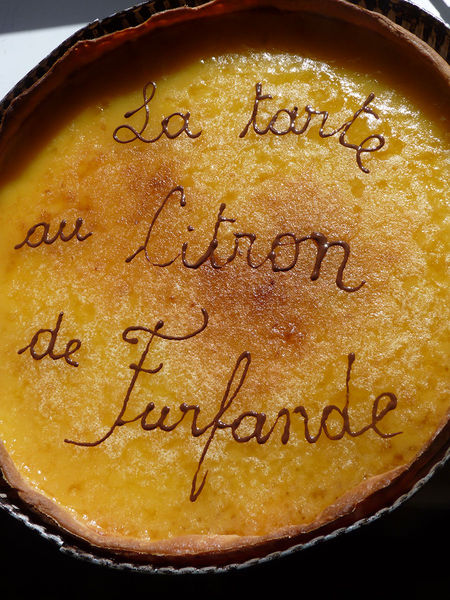 La tarte
au Citron
de Furfande